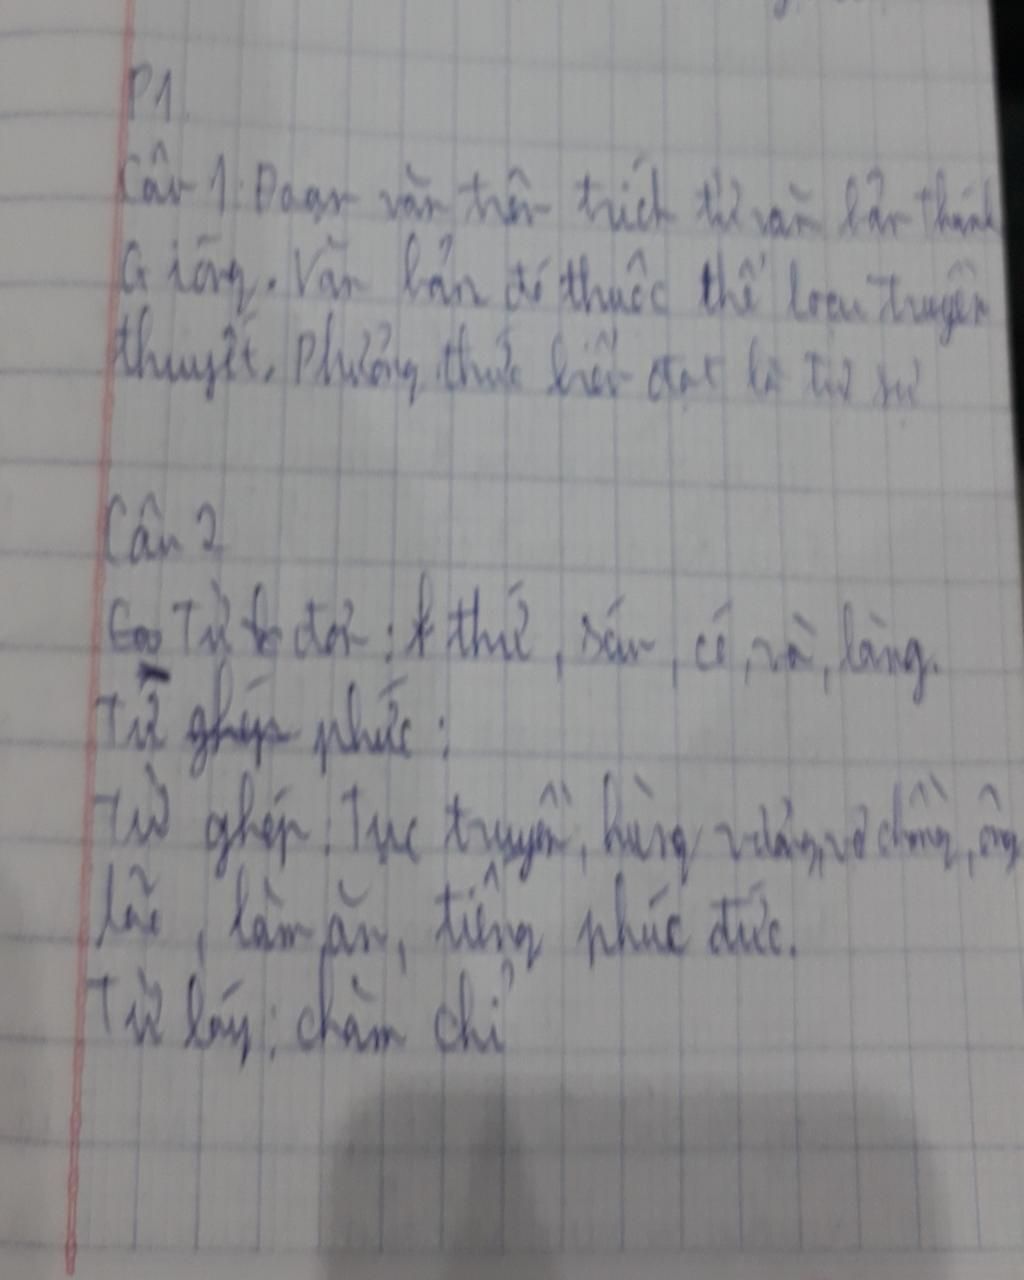 P1
Câu 1: Đoạn văn trên trích từ văn bản thánh
Gióng. Văn bản đó thuộc thể loại truyền
thuyết. Phương thức biểu đạt là tự sự
Câu 2
Từ đơn: thứ, sáu, có, và, làng.
Từ ghép phức:
Từ ghép: Tục truyền, hùng vương, vợ chồng, ông
lão, làm ăn, tiếng phúc đức.
Từ láy: chăm chỉ